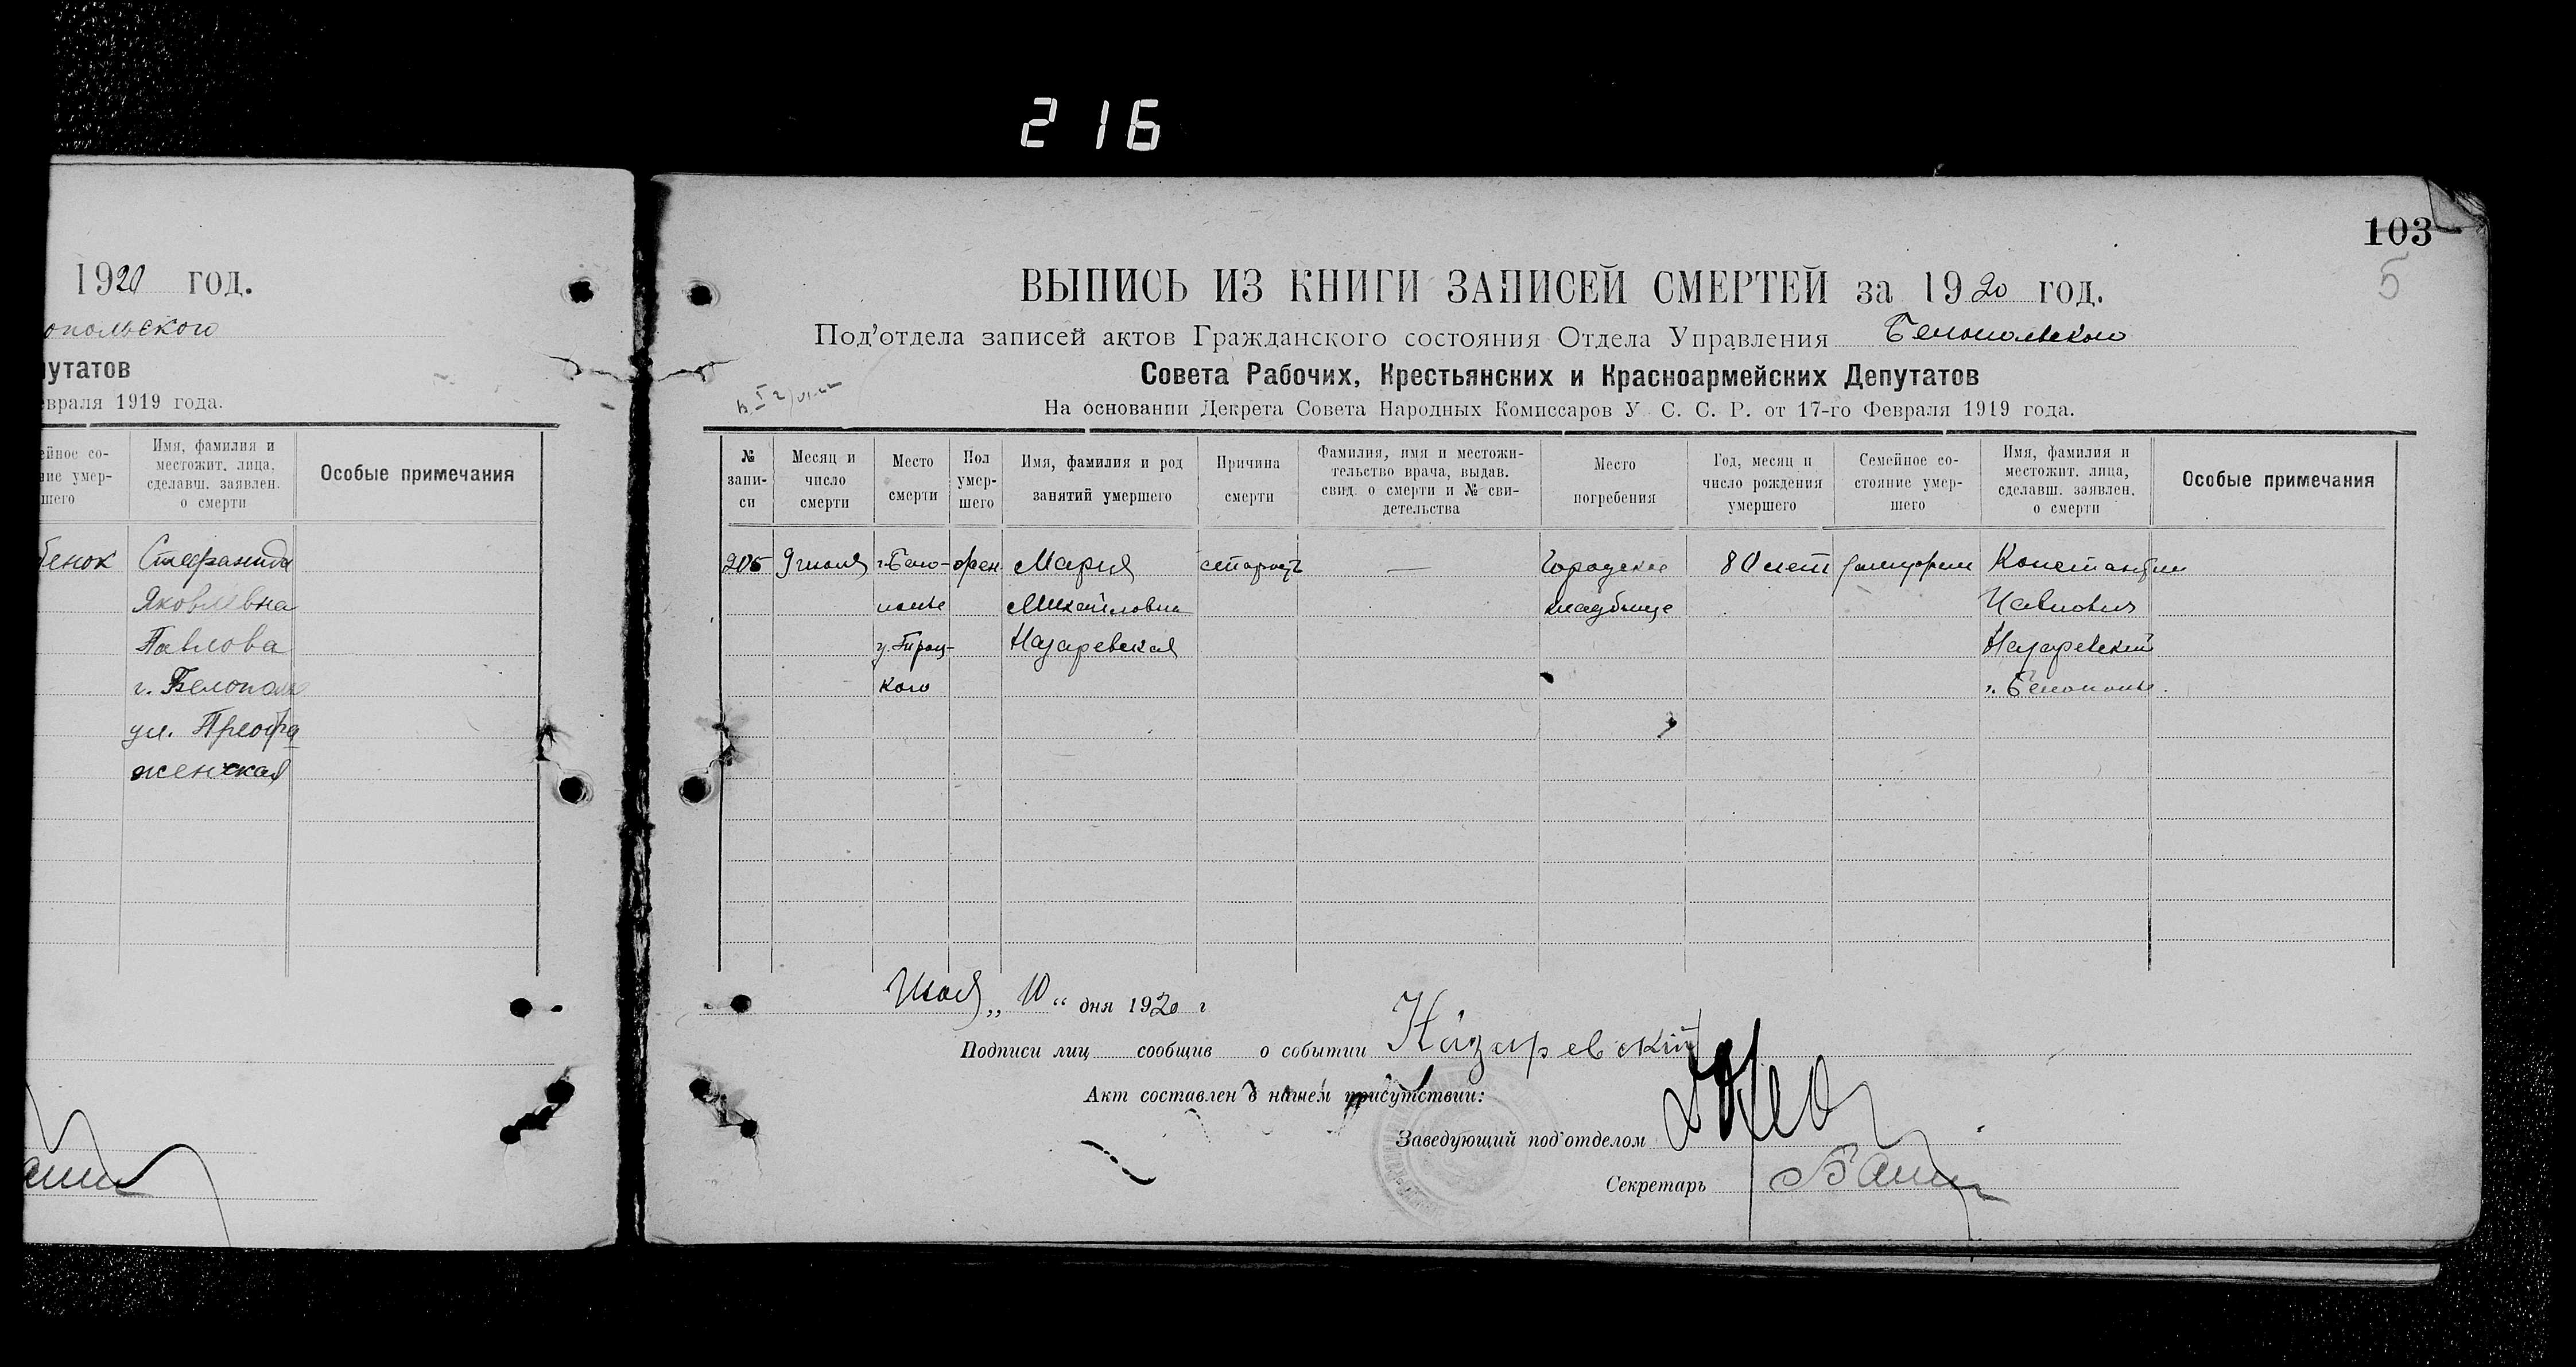 216
1920 год.
опольского
путатов
евраля 1919 года.
ейное со-
ние умер-
шего
Имя, фамилия и
местожит. лица,
сделавш. заявлен.
о смерти
Особые примечания
бенок
Яковлевна
Павлова
г. Белополь
ул. Преобра
женская
103
5
ВЫПИСЬ ИЗ КНИГИ ЗАПИСЕЙ СМЕРТЕЙ за 1920 год.
Под'отдела записей актов Гражданского состояния Отдела Управления Белопольского
Совета Рабочих, Крестьянских и Красноармейских Депутатов
На основании Декрета Совета Народных Комиссаров У. С. С. Р. от 17-го Февраля 1919 года.
№
запи-
си
Месяц и
число
смерти
Место
смерти
Пол
умер-
шего
Имя, фамилия и род
занятий умершего
Причина
смерти
Фамилия, имя и местожи-
тельство врача, выдав.
свид. о смерти и № сви-
детельства
Место
погребения
Год, месяц и
число рождения
умершего
Семейное со-
стояние умер-
шего
Имя, фамилия и
местожит. лица,
сделавш. заявлен.
о смерти
Особые примечания
205
9 июля
г. Бело-
полье
у. Троц-
кого
жен
Мария
Михайловна
Назаревская
старость
—
Городское
кладбище
80 лет
Константин
Павлович
Назаревский
г. Белополье.
Июля „ 10 “ дня 1920 г
Подписи лиц сообщив о событии Назаревский
Акт составлен в нашем присутствии:
Заведующий под'отделом
Секретарь